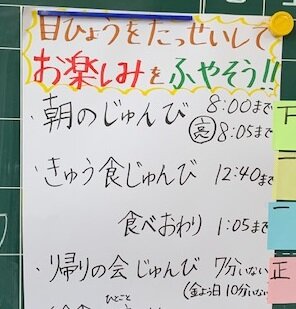 目ひょうをたっせいして
お楽しみをふやそう!!
・朝のじゅんび 8:00まで
8:05まで
・きゅう食じゅんび 12:40まで
食べおわり 1:05まで
・帰りの会じゅんび 7分いない
(金よう日10分いない)
ひとこと
正